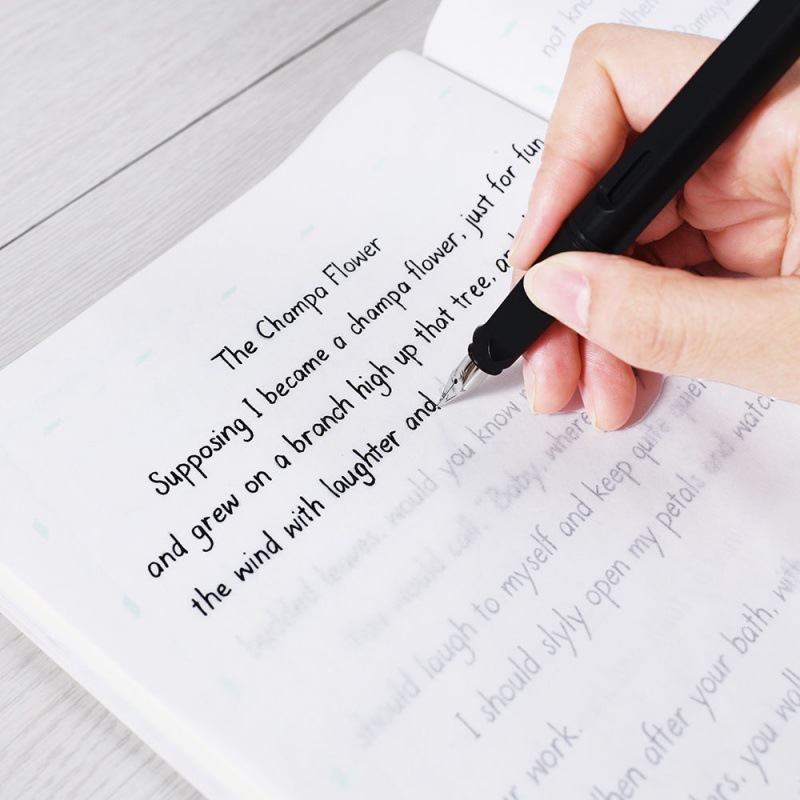 not kno
When
Ramaya
The Champa Flower
Supposing I became a champa flower, just for fun,
and grew on a branch high up that tree, and
the wind with laughter and
budded leaves, would you know
You would call, "Baby, where
should laugh to myself and keep quite quiet
I should slyly open my petals and watch
r work.
hen after your bath, with
ers, you walk